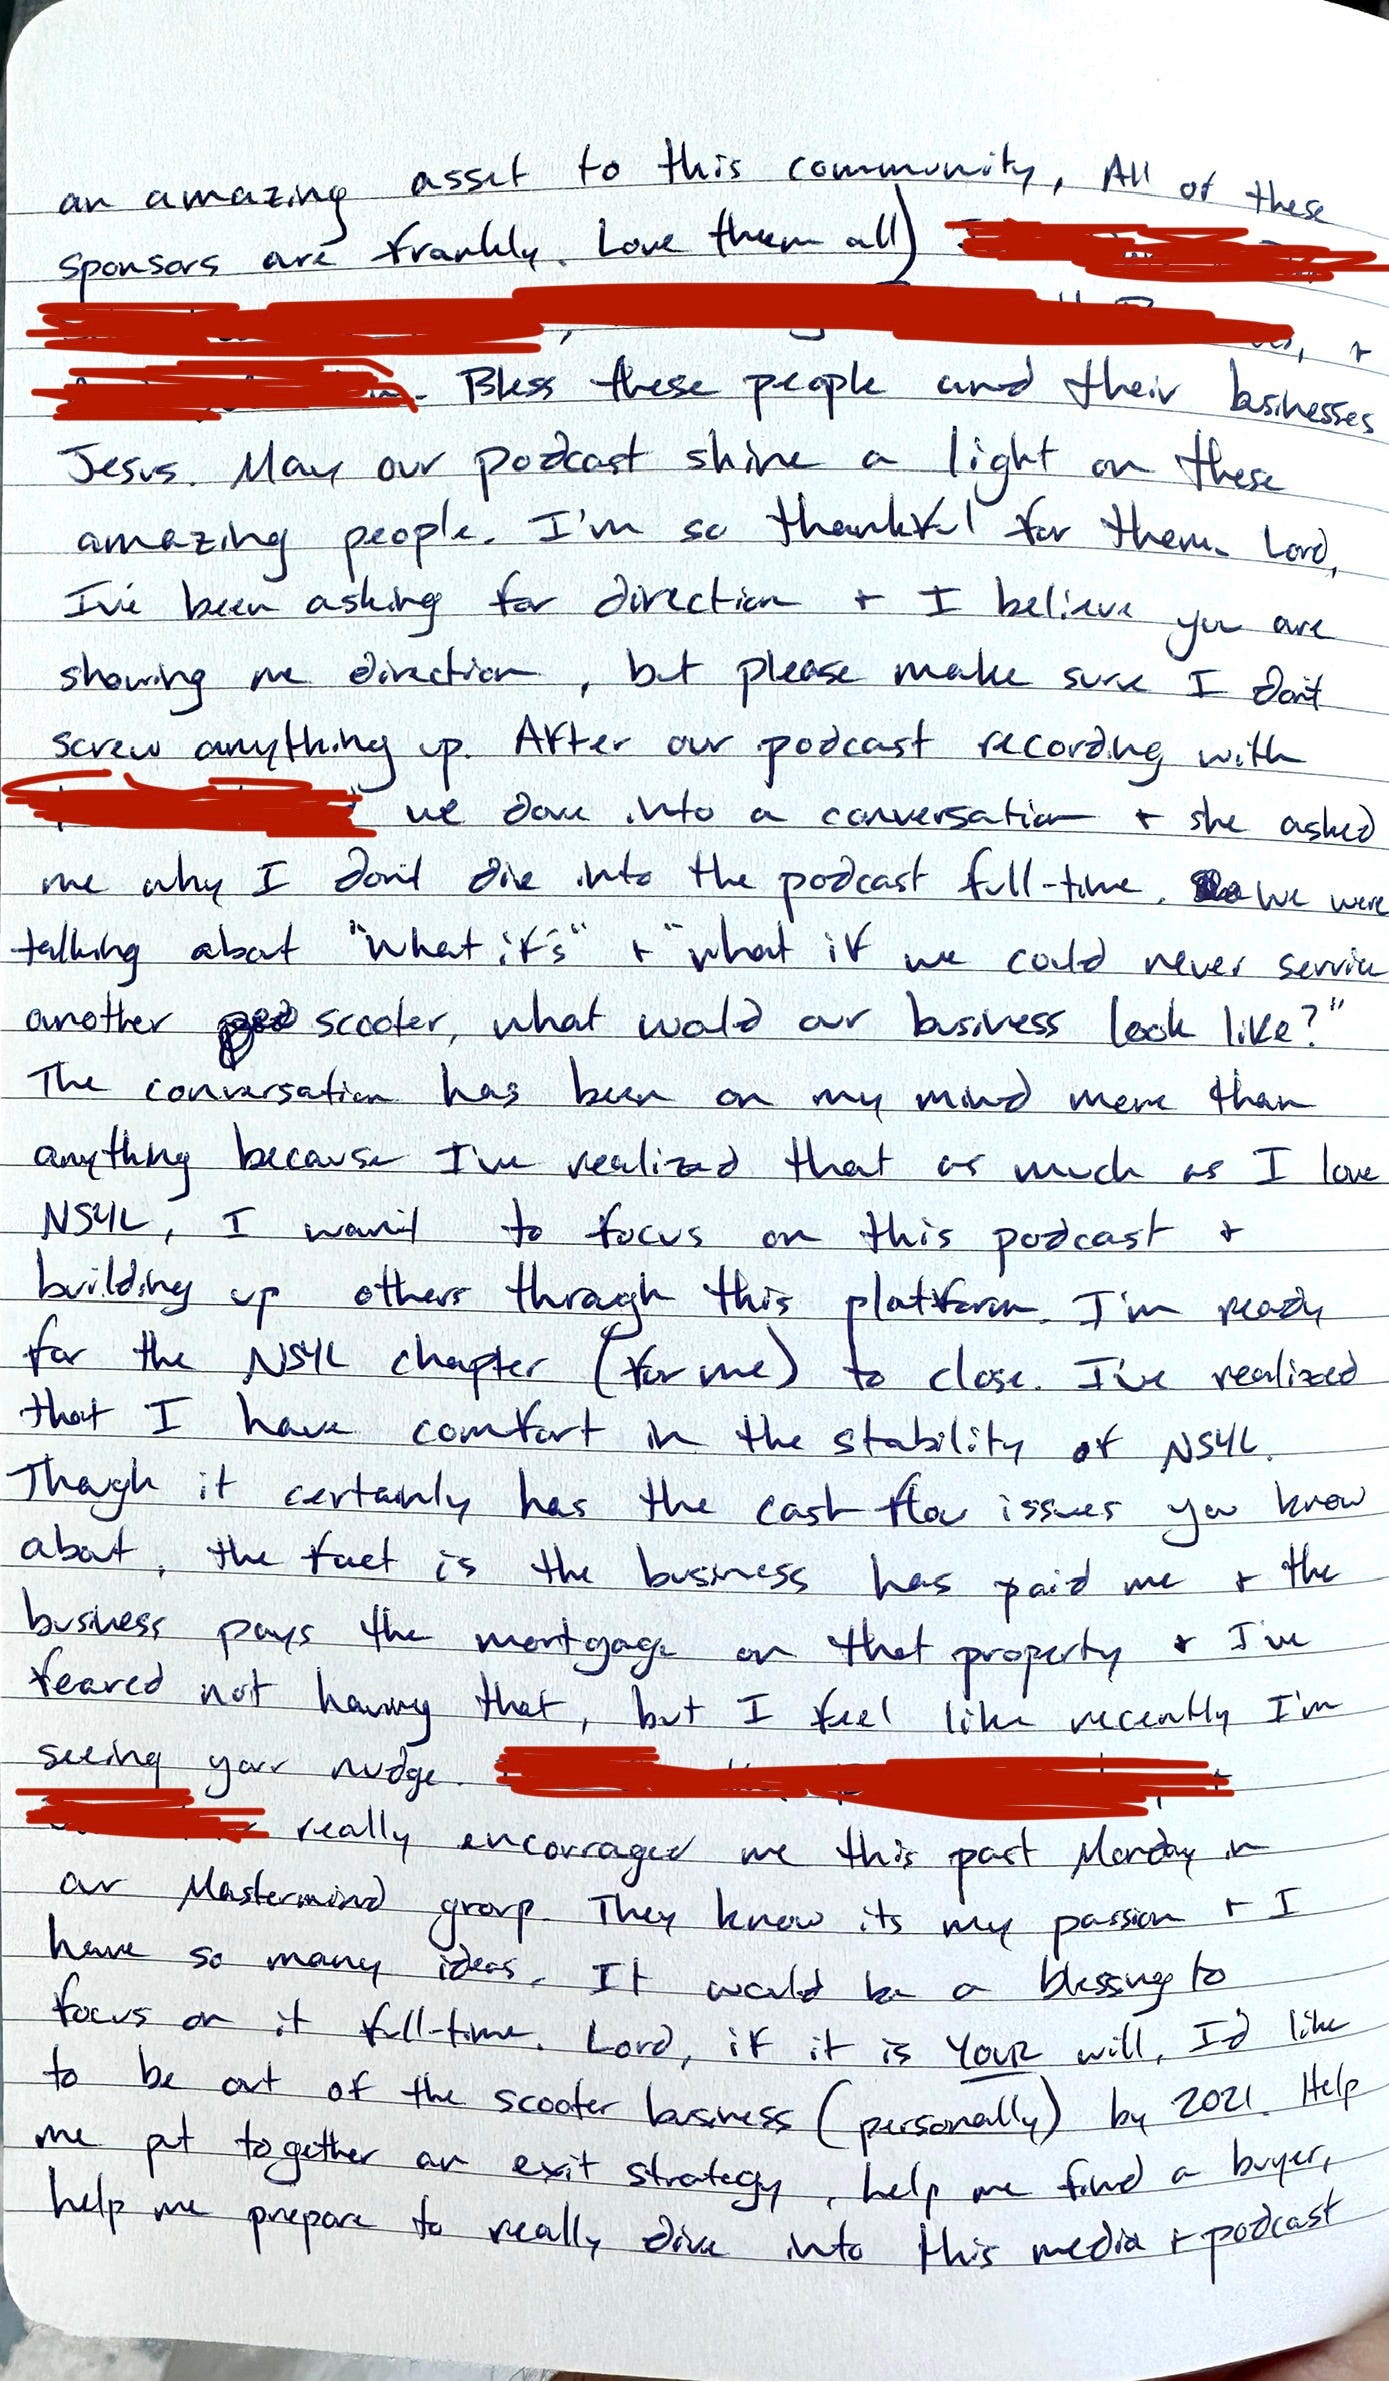 an amazing asset to this community. All of these
sponsors are frankly. Love them all)
, +
. Bless these people and their businesses
Jesus. May our podcast shine a light on these
amazing people. I'm so thankful for them. Lord,
I've been asking for direction + I believe you are
showing me direction, but please make sure I don't
screw anything up. After our podcast recording with
we dove into a conversation + she asked
me why I don't dive into the podcast full-time. We were
talking about "what if's" + "what if we could never service
another scooter, what would our business look like?"
The conversation has been on my mind more than
anything because I've realized that as much as I love
NS4L, I want to focus on this podcast +
building up others through this platform. I'm ready
for the NS4L chapter (for me) to close. I've realized
that I have comfort in the stability of NS4L.
Though it certainly has the cash flow issues you know
about, the fact is the business has paid me + the
business pays the mortgage on that property + I've
feared not having that, but I feel like recently I'm
seeing your nudge.
really encouraged me this past Monday in
our Mastermind group. They know its my passion + I
have so many ideas. It would be a blessing to
focus on it full-time. Lord, if it is YOUR will, I'd like
to be out of the scooter business (personally) by 2021. Help
me put together an exit strategy, help me find a buyer,
help me prepare to really dive into this media + podcast